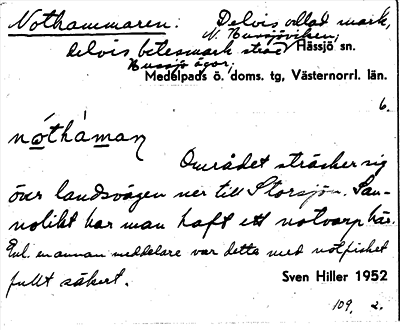 Nothammaren. Delvis odlad mark,
delvis betesmark N. Hussjöviken;
Hässjö sn.
Hussjö ägor;
Medelpads ö. doms. tg, Västernorrl. län.
6.
nóthàman
Området sträcker sig
över landsvägen ner till Storsjön. San-
nolikt har man haft ett notvarp här.
Enl. en annan meddelare var detta med notfisket
fullt säkert.
Sven Hiller 1952
109. 2.